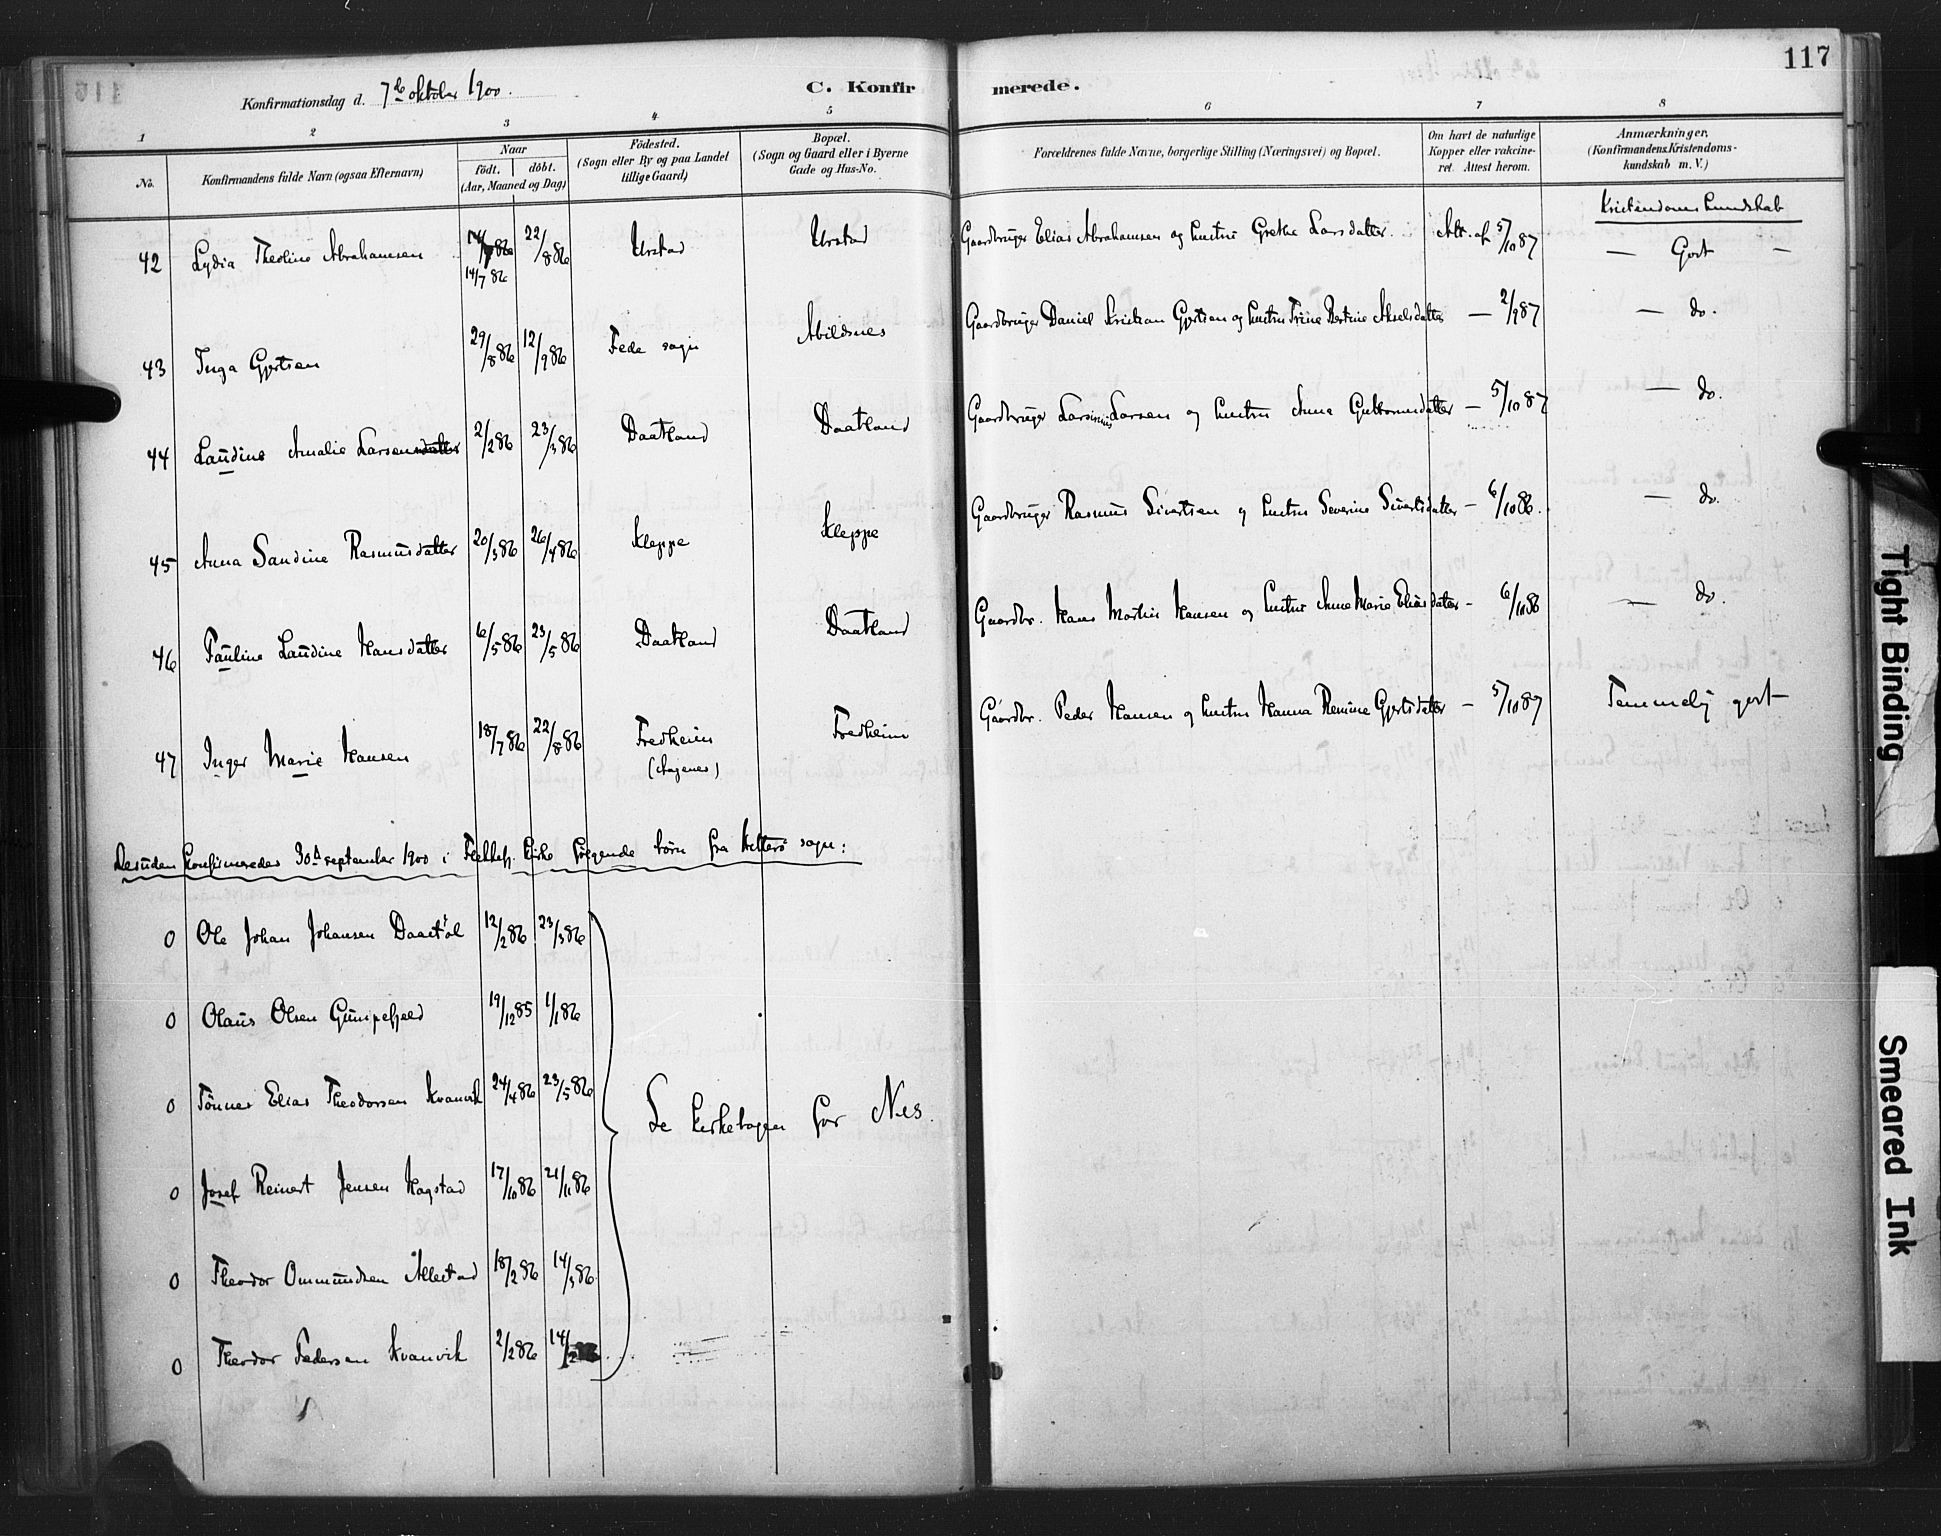 117
Konfirmationsdag d. 7de oktober 1900.
C. Konfirmerede.
1 2 3 4 5 6 7 8
No.
Konfirmandens fulde Navn (ogsaa Efternavn)
Naar
födt. döbt.
(Aar, Maaned og Dag)
Födested.
(Sogn eller By og paa Landet
tillige Gaard)
Bopæl.
(Sogn og Gaard eller i Byerne
Gade og Hus-No.
Forældrenes fulde Navne, borgerlige Stilling (Næringsvei) og Bopæl.
Om havt de naturlige
Kopper eller vakcine-
ret. Attest herom.
Anmærkninger,
(Konfirmandens Kristendoms-
kundskab m. V.)
Kristendomskundskab
42 Lydia Theoline Abrahamsen 14/7 86 22/8 86 Urstad Urstad Gaardbruger Elias Abrahamsen og hustru Grethe Larsdatter. Att. af 5/10 87 — Godt —
14/7 86
43 Inga Gjertsen 29/8 86 12/9 86 Fede sogn Abildsnes Gaardbruger Daniel Kristian Gjertsen og hustru Trine Bertine Akselsdatter — 2/9 87 — do.
44 Laudine Amalie Larsensdatter 2/2 86 23/3 86 Daatland Daatland Gaardbruger Larsinius Larsen og hustru Anna Guttormsdatter — 5/10 87 — do.
45 Anna Sandine Rasmusdatter 20/3 86 26/4 86 Kleppe Kleppe Gaardbruger Rasmus Sivertsen og hustru Severine Sivertsdatter — 6/10 86. — do.
46 Pauline Laudine Hansdatter 6/5 86 23/5 86 Daatland Daatland Gaardbr. Hans Martin Hansen og hustru Anne Marie Eliasdatter — 6/10 86 — do.
47 Inger Marie Hansen 18/7 86 22/8 86 Fredheim Fredheim Gaardbr. Peder Hansen og hustru Hanna Remine Gjertsdatter — 5/10 87 Temmelig godt
(Aagenes)
Desuden konfirmeredes 30te september 1900 i Flekkefj. kirke følgende børn fra Hitterø sogn:
0 Ole Johan Johansen Daatöl 12/2 86 23/3 86
0 Olaus Olsen Gumpefjeld 19/12 85 1/1 86
0 Tönnes Elias Theodorsen Kvanvik 24/4 86 23/5 86
Se kirkebogen for Nes.
0 Josef Reinert Jensen Hagstad 17/10 86 21/11 86
0 Theodor Ommundsen Allestad 18/2 86 14/3 86
0 Theodor Pedersen Kvanvik 2/2 86 14/2
Tight Binding
Smeared Ink